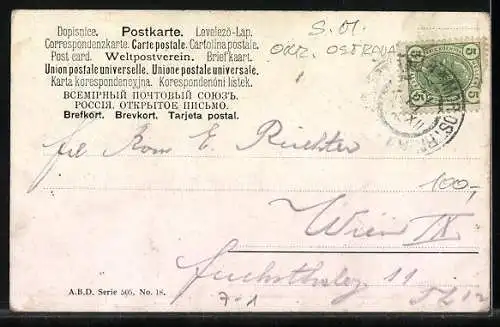 Dopisnice. Postkarte. Levelező-Lap.
Correspondenzkarte. Carte postale. Cartolina postale.
Post card. Weltpostverein. Briefkaart.
Union postale universelle. Unione postale universale.
Karta korespondencyjna. Korespondenční lístek.
ВСЕМІРНЫЙ ПОЧТОВЫЙ СОЮЗЪ.
РОССІЯ. ОТКРЫТОЕ ПИСЬМО.
Brefkort. Brevkort. Tarjeta postal.
S. M.
OSTRAVA
5 5
5 5
E. Richter
100,-
Wien IX
11
A.B.D. Serie 505, No. 18.
7-1